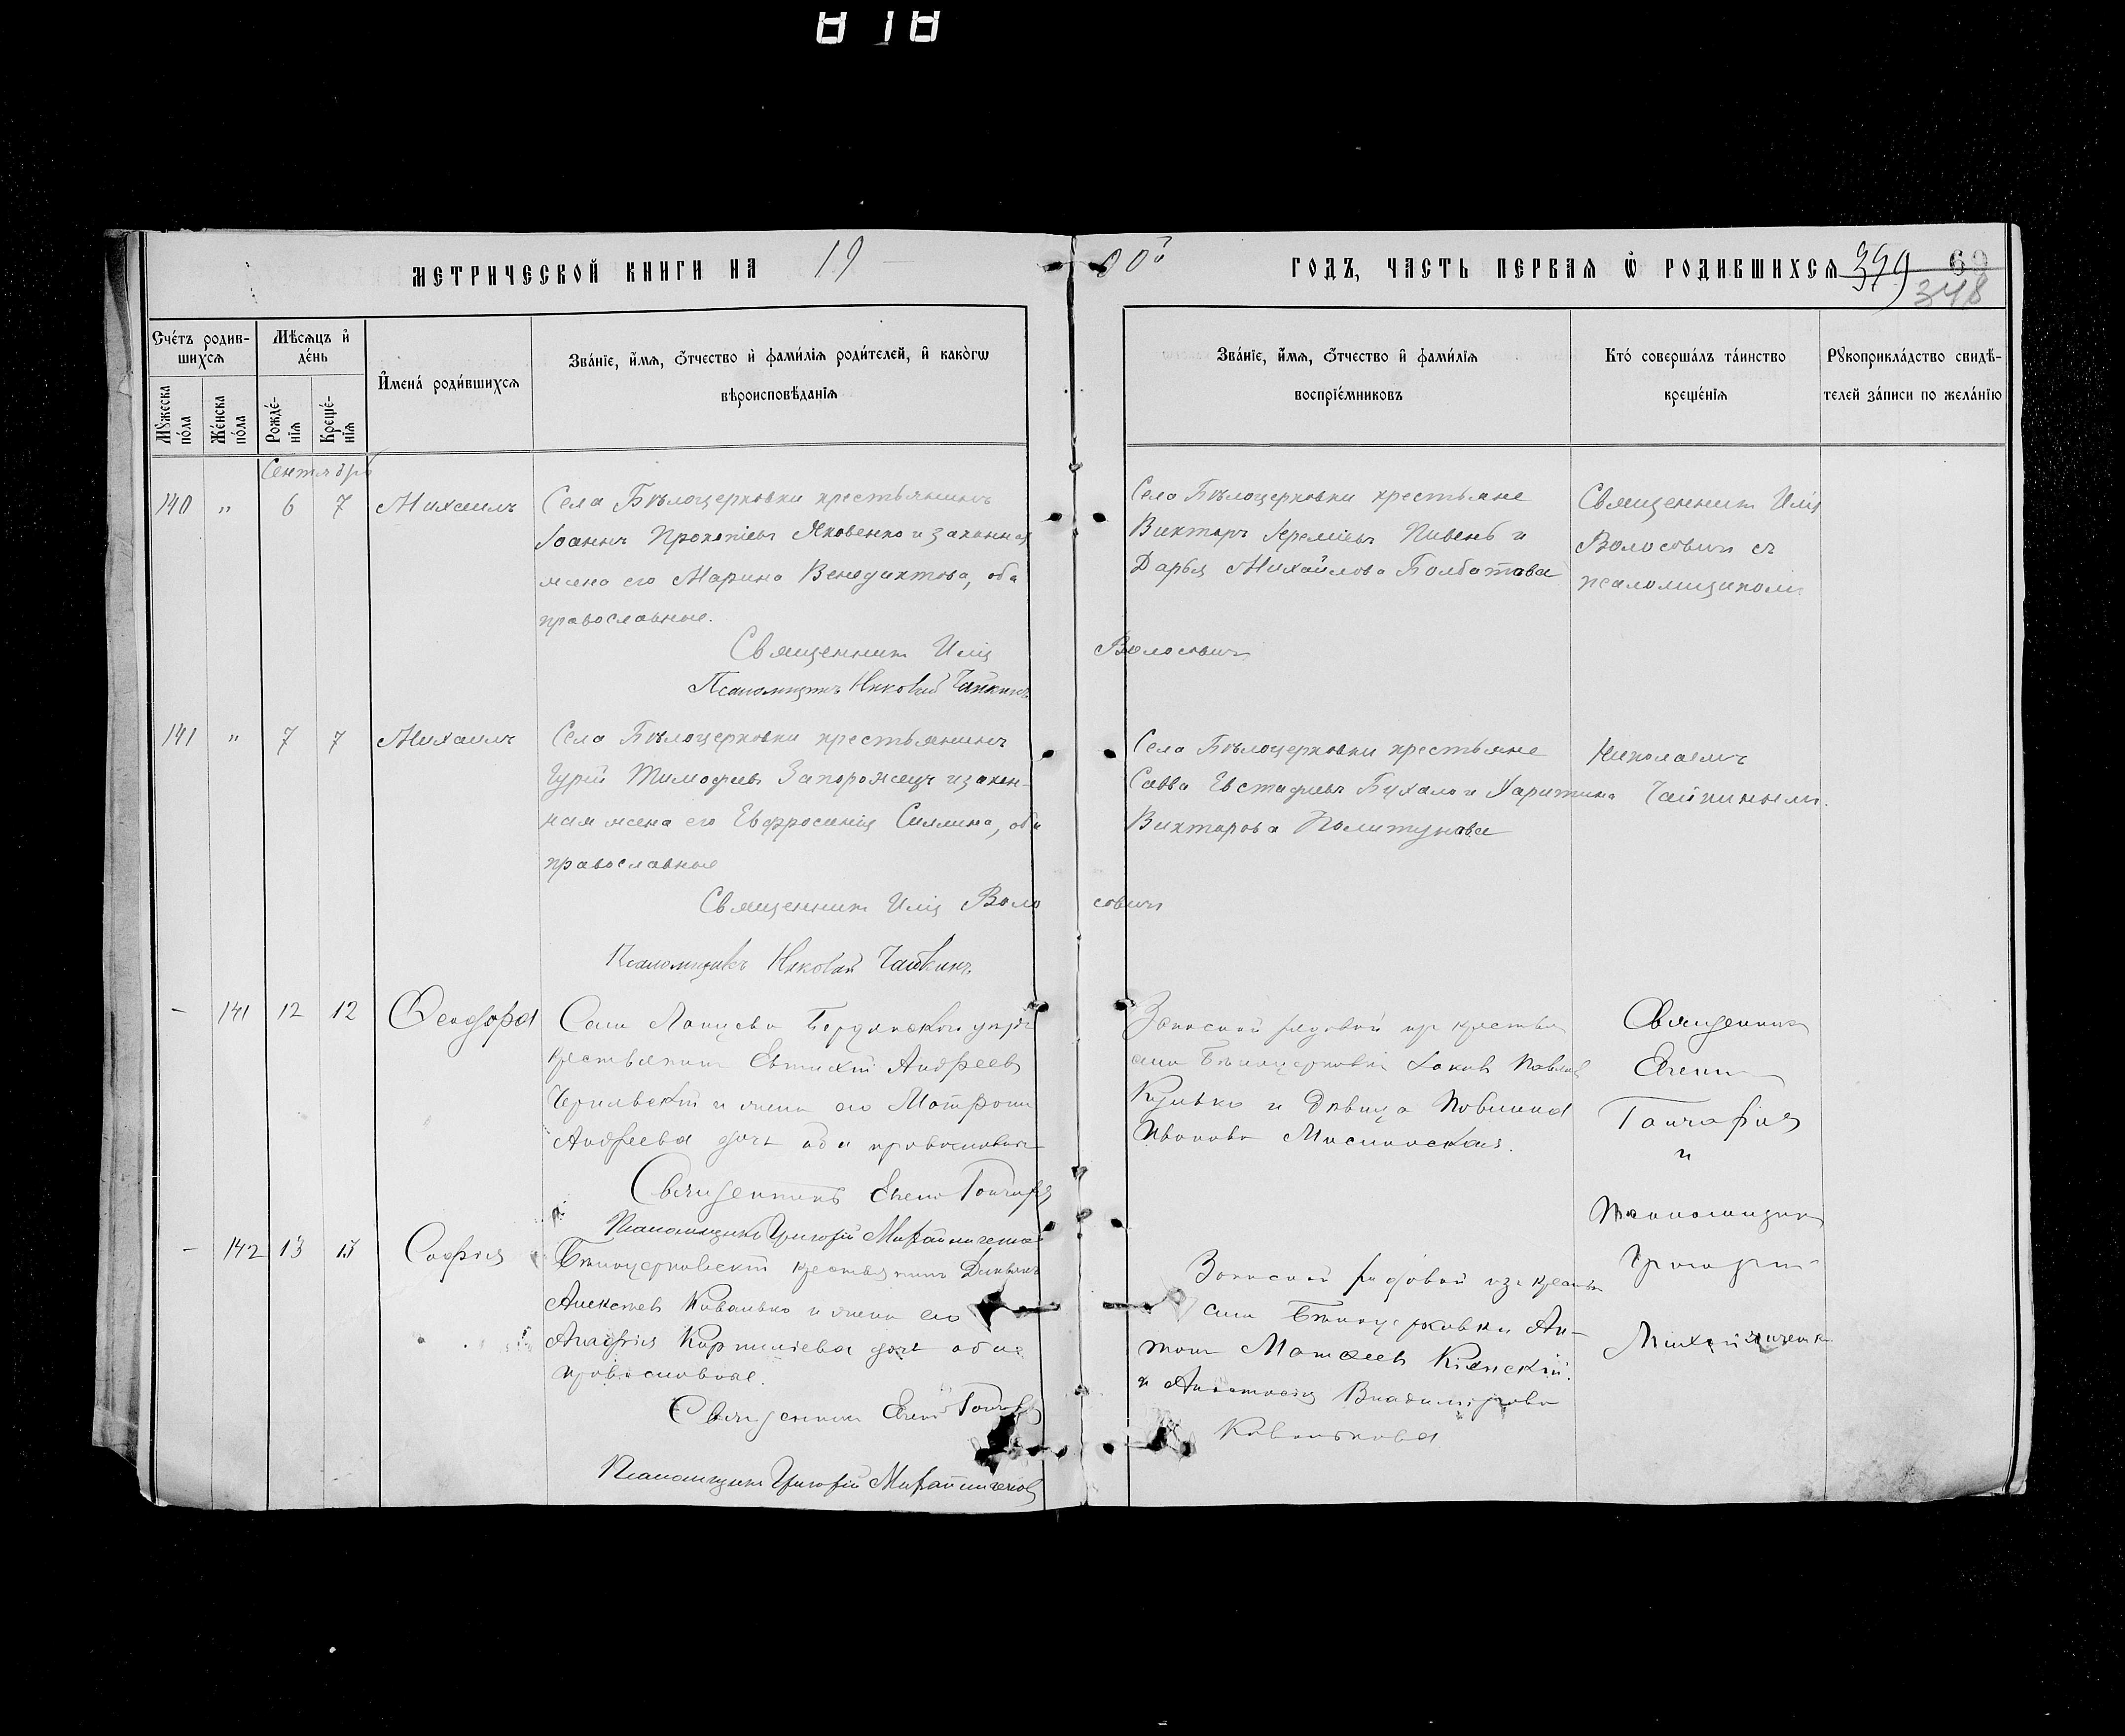 818
МЕТРИЧЕСКОЙ КНИГИ НА 19
00й ГОДЪ, ЧАСТЬ ПЕРВАЯ Ѿ РОДИВШИХСЯ 379 69
348
Счетъ родив-
шихся
Мужеска
пола
Женска
пола
Мѣсяцъ и
день
Рожде-
нія
Креще-
нія
Имена родившихся
Званіе, имя, отчество и фамилія родителей, и какогѡ
вѣроисповѣданія
Званіе, имя, отчество и фамилія
воспріемниковъ
Кто совершалъ таинство
крещенія
Рукоприкладство свидѣ-
телей записи по желанію
Сентябрь
140 " 6 7 Михаилъ
Села Бѣлоцерковки крестьянинъ
Іоаннъ Прокопіевъ Яковенко и законная
жена его Марина Венедиктова, оба
православные.
Священникъ Илія Волосовичъ
Псаломщикъ Николай Чайкинъ
Села Бѣлоцерковки крестьяне
Викторъ Іереміевъ Пивень и
Дарья Михайлова Болбатова
Священникъ Илія
Волосовичъ съ
псаломщикомъ
141 " 7 7 Михаилъ
Села Бѣлоцерковки крестьянинъ
Гурій Тимофеевъ Запорожецъ и закон-
ная жена его Евфросинія Силина, оба
православные
Священникъ Илія Волосовичъ
Псаломщикъ Николай Чайкинъ
Села Бѣлоцерковки крестьяне
Савва Евстафіевъ Бухало и Харитина
Викторова Политунова
Николаемъ
Чайкинымъ.
– 141 12 12 Феодора
Бердянскаго уѣзда
крестьянинъ Евтихій Андреевъ
и жена его Матрона
Андреева дочь оба православные
Священникъ Евгеній Гончаровъ
Псаломщикъ Григорій
Запасной рядовой изъ крестьянъ
села Бѣлоцерковки Іаковъ Павловъ
Кулько и дѣвица
Иванова
Священникъ
Евгеній
Гончаровъ
и
Псаломщикъ
Григорій
– 142 13 13 Софія
Бѣлоцерковскій крестьянинъ
Алексѣевъ Ковалько и жена его
Агафія Корнильева дочь оба
православные.
Священникъ Евгеній Гончаровъ
Псаломщикъ Григорій
Запасной рядовой изъ крестьянъ
села Бѣлоцерковки Ан-
тонъ Матѳеевъ Кіянскій
и Анастасія Владимірова
Ковалькова